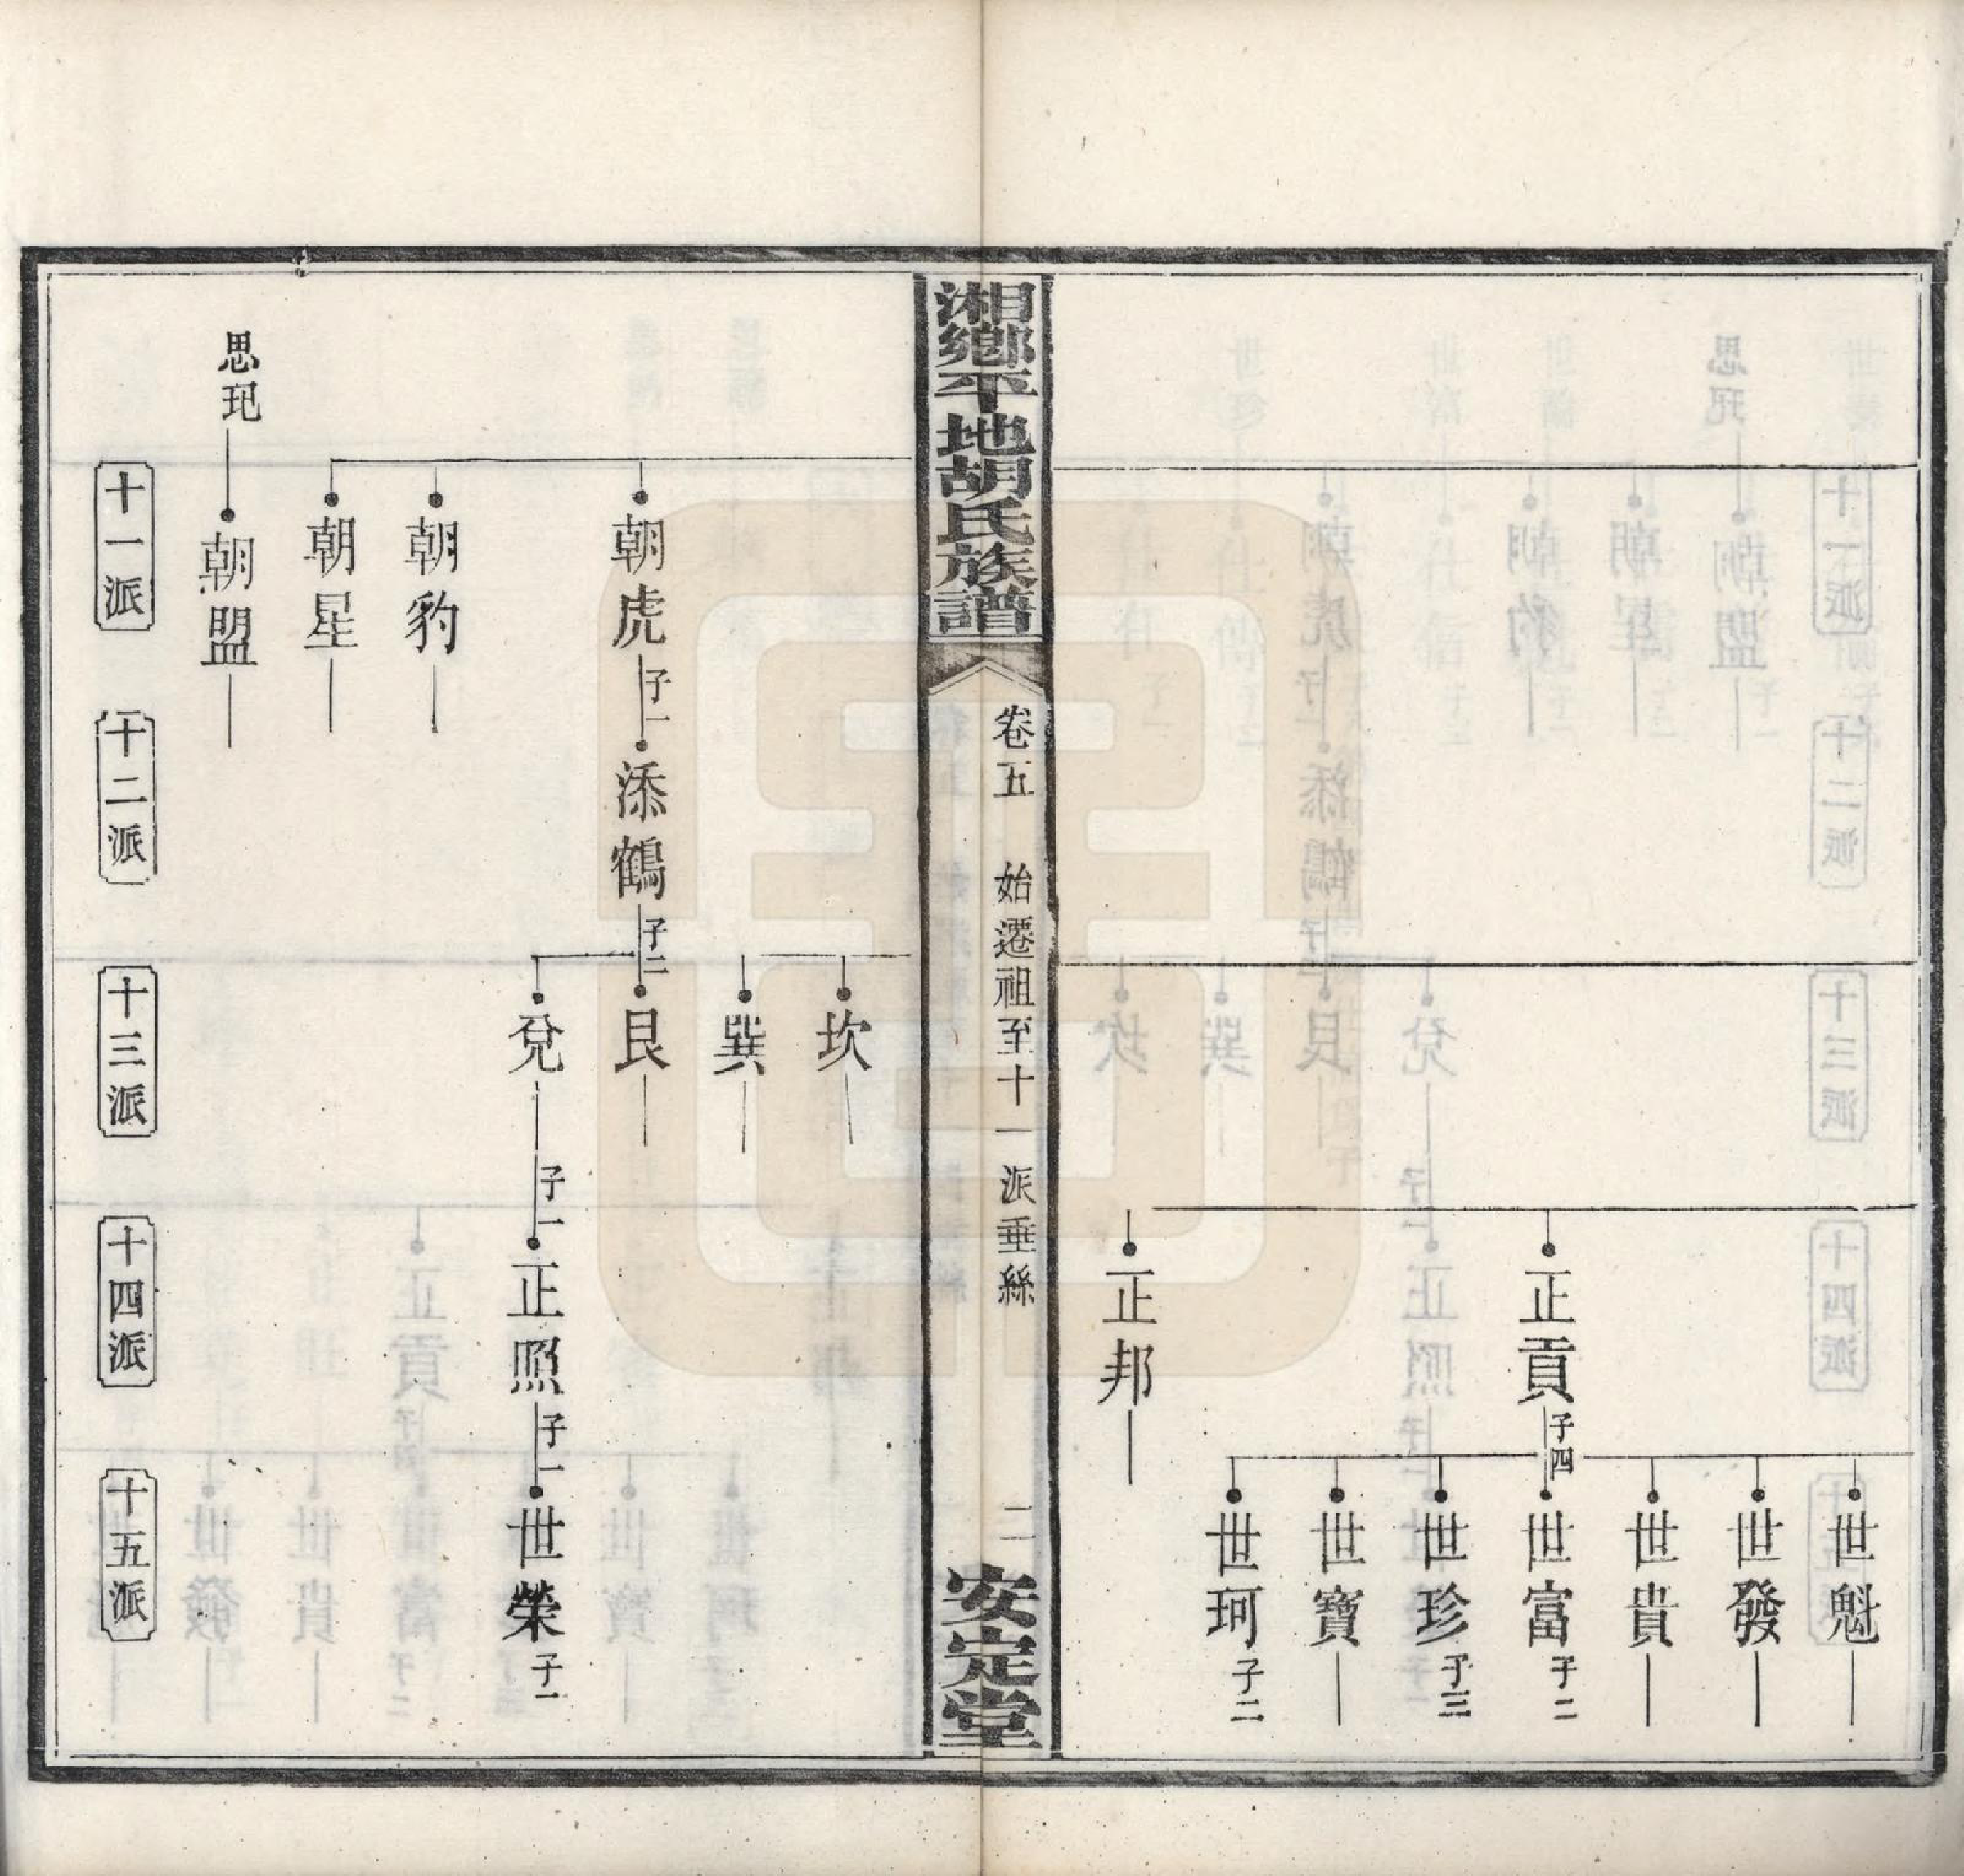 世魁
世發
世貴
正貢 子四
世富 子二
世珍 子三
世寶
世珂 子二
正邦
湘鄉平地胡氏族譜
卷五 始遷祖至十一派垂絲
二
安定堂
坎
巽
朝虎 子一
添鶴 子二
艮
兌 子一
正照 子一
世榮 子一
朝豹
朝星
思玘
朝盟
十一派
十二派
十三派
十四派
十五派